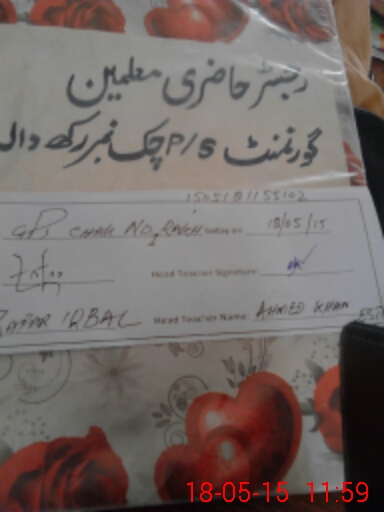 رجسٹر حاضری معلمین
گورنمنٹ P/S چک نمبر رکھ وال
1505181155102
GPS CHAK NO. RAKH on 18/05/15
Head Teacher Signature:
IQBAL Head Teacher Name: AHMED KHAN
18-05-15 11:59